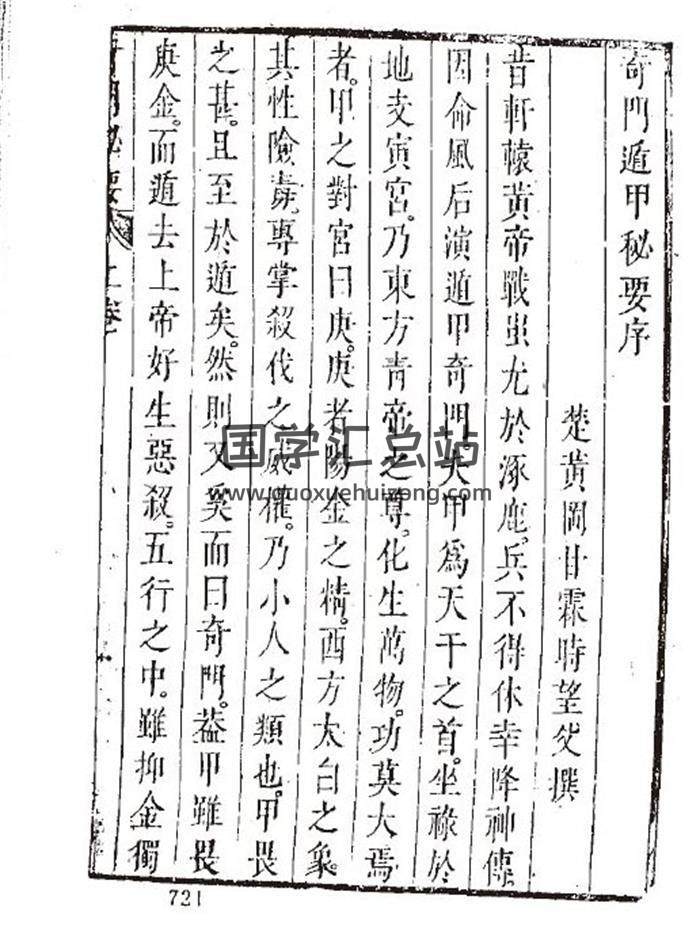 奇門遁甲秘要序
楚黃岡甘霖時望父撰
昔軒轅黃帝戰蚩尤於涿鹿。兵不得休幸降神傳。
因命風后演遁甲奇門夫甲爲天干之首。坐祿於
地支寅宮。乃東方青帝之尊。化生萬物。功莫大焉
者。甲之對宮曰庚。庚者陽金之精。西方太白之象。
其性險毒。專掌殺伐之威權。乃小人之類也。甲畏
之甚。且至於遁矣。然則又奚而曰奇門。葢甲雖畏
庚金。而遁去上帝好生惡殺。五行之中。雖抑金獨
奇門秘要 上卷
国学汇总站
www.guoxuehuizong.com
721